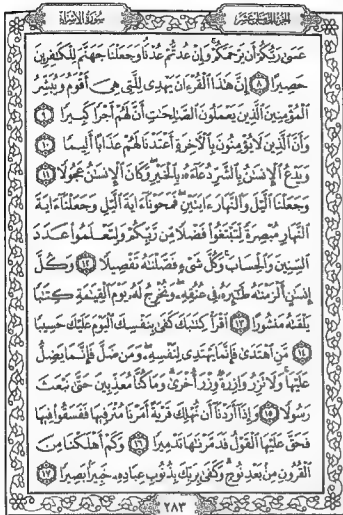 الجزء الخامس عشر سورة الإسراء
عَسَىٰ رَبُّكُمْ أَن يَرْحَمَكُمْ ۚ وَإِنْ عُدتُّمْ عُدْنَا ۘ وَجَعَلْنَا جَهَنَّمَ لِلْكَٰفِرِينَ
حَصِيرًا ٨ إِنَّ هَٰذَا ٱلْقُرْءَانَ يَهْدِى لِلَّتِى هِىَ أَقْوَمُ وَيُبَشِّرُ
ٱلْمُؤْمِنِينَ ٱلَّذِينَ يَعْمَلُونَ ٱلصَّٰلِحَٰتِ أَنَّ لَهُمْ أَجْرًا كَبِيرًا ٩
وَأَنَّ ٱلَّذِينَ لَا يُؤْمِنُونَ بِٱلْءَاخِرَةِ أَعْتَدْنَا لَهُمْ عَذَابًا أَلِيمًا ١٠
وَيَدْعُ ٱلْإِنسَٰنُ بِٱلشَّرِّ دُعَآءَهُۥ بِٱلْخَيْرِ ۖ وَكَانَ ٱلْإِنسَٰنُ عَجُولًا ١١
وَجَعَلْنَا ٱلَّيْلَ وَٱلنَّهَارَ ءَايَتَيْنِ ۖ فَمَحَوْنَآ ءَايَةَ ٱلَّيْلِ وَجَعَلْنَآ ءَايَةَ
ٱلنَّهَارِ مُبْصِرَةً لِّتَبْتَغُوا۟ فَضْلًا مِّن رَّبِّكُمْ وَلِتَعْلَمُوا۟ عَدَدَ
ٱلسِّنِينَ وَٱلْحِسَابَ ۚ وَكُلَّ شَىْءٍ فَصَّلْنَٰهُ تَفْصِيلًا ١٢ وَكُلَّ
إِنسَٰنٍ أَلْزَمْنَٰهُ طَٰٓئِرَهُۥ فِى عُنُقِهِۦ ۖ وَنُخْرِجُ لَهُۥ يَوْمَ ٱلْقِيَٰمَةِ كِتَٰبًا
يَلْقَىٰهُ مَنشُورًا ١٣ ٱقْرَأْ كِتَٰبَكَ كَفَىٰ بِنَفْسِكَ ٱلْيَوْمَ عَلَيْكَ حَسِيبًا
١٤ مَّنِ ٱهْتَدَىٰ فَإِنَّمَا يَهْتَدِى لِنَفْسِهِۦ ۖ وَمَن ضَلَّ فَإِنَّمَا يَضِلُّ
عَلَيْهَا ۚ وَلَا تَزِرُ وَازِرَةٌ وِزْرَ أُخْرَىٰ ۗ وَمَا كُنَّا مُعَذِّبِينَ حَتَّىٰ نَبْعَثَ
رَسُولًا ١٥ وَإِذَآ أَرَدْنَآ أَن نُّهْلِكَ قَرْيَةً أَمَرْنَا مُتْرَفِيهَا فَفَسَقُوا۟ فِيهَا
فَحَقَّ عَلَيْهَا ٱلْقَوْلُ فَدَمَّرْنَٰهَا تَدْمِيرًا ١٦ وَكَمْ أَهْلَكْنَا مِنَ
ٱلْقُرُونِ مِنۢ بَعْدِ نُوحٍ ۗ وَكَفَىٰ بِرَبِّكَ بِذُنُوبِ عِبَادِهِۦ خَبِيرًۢا بَصِيرًا ١٧
٢٨٣